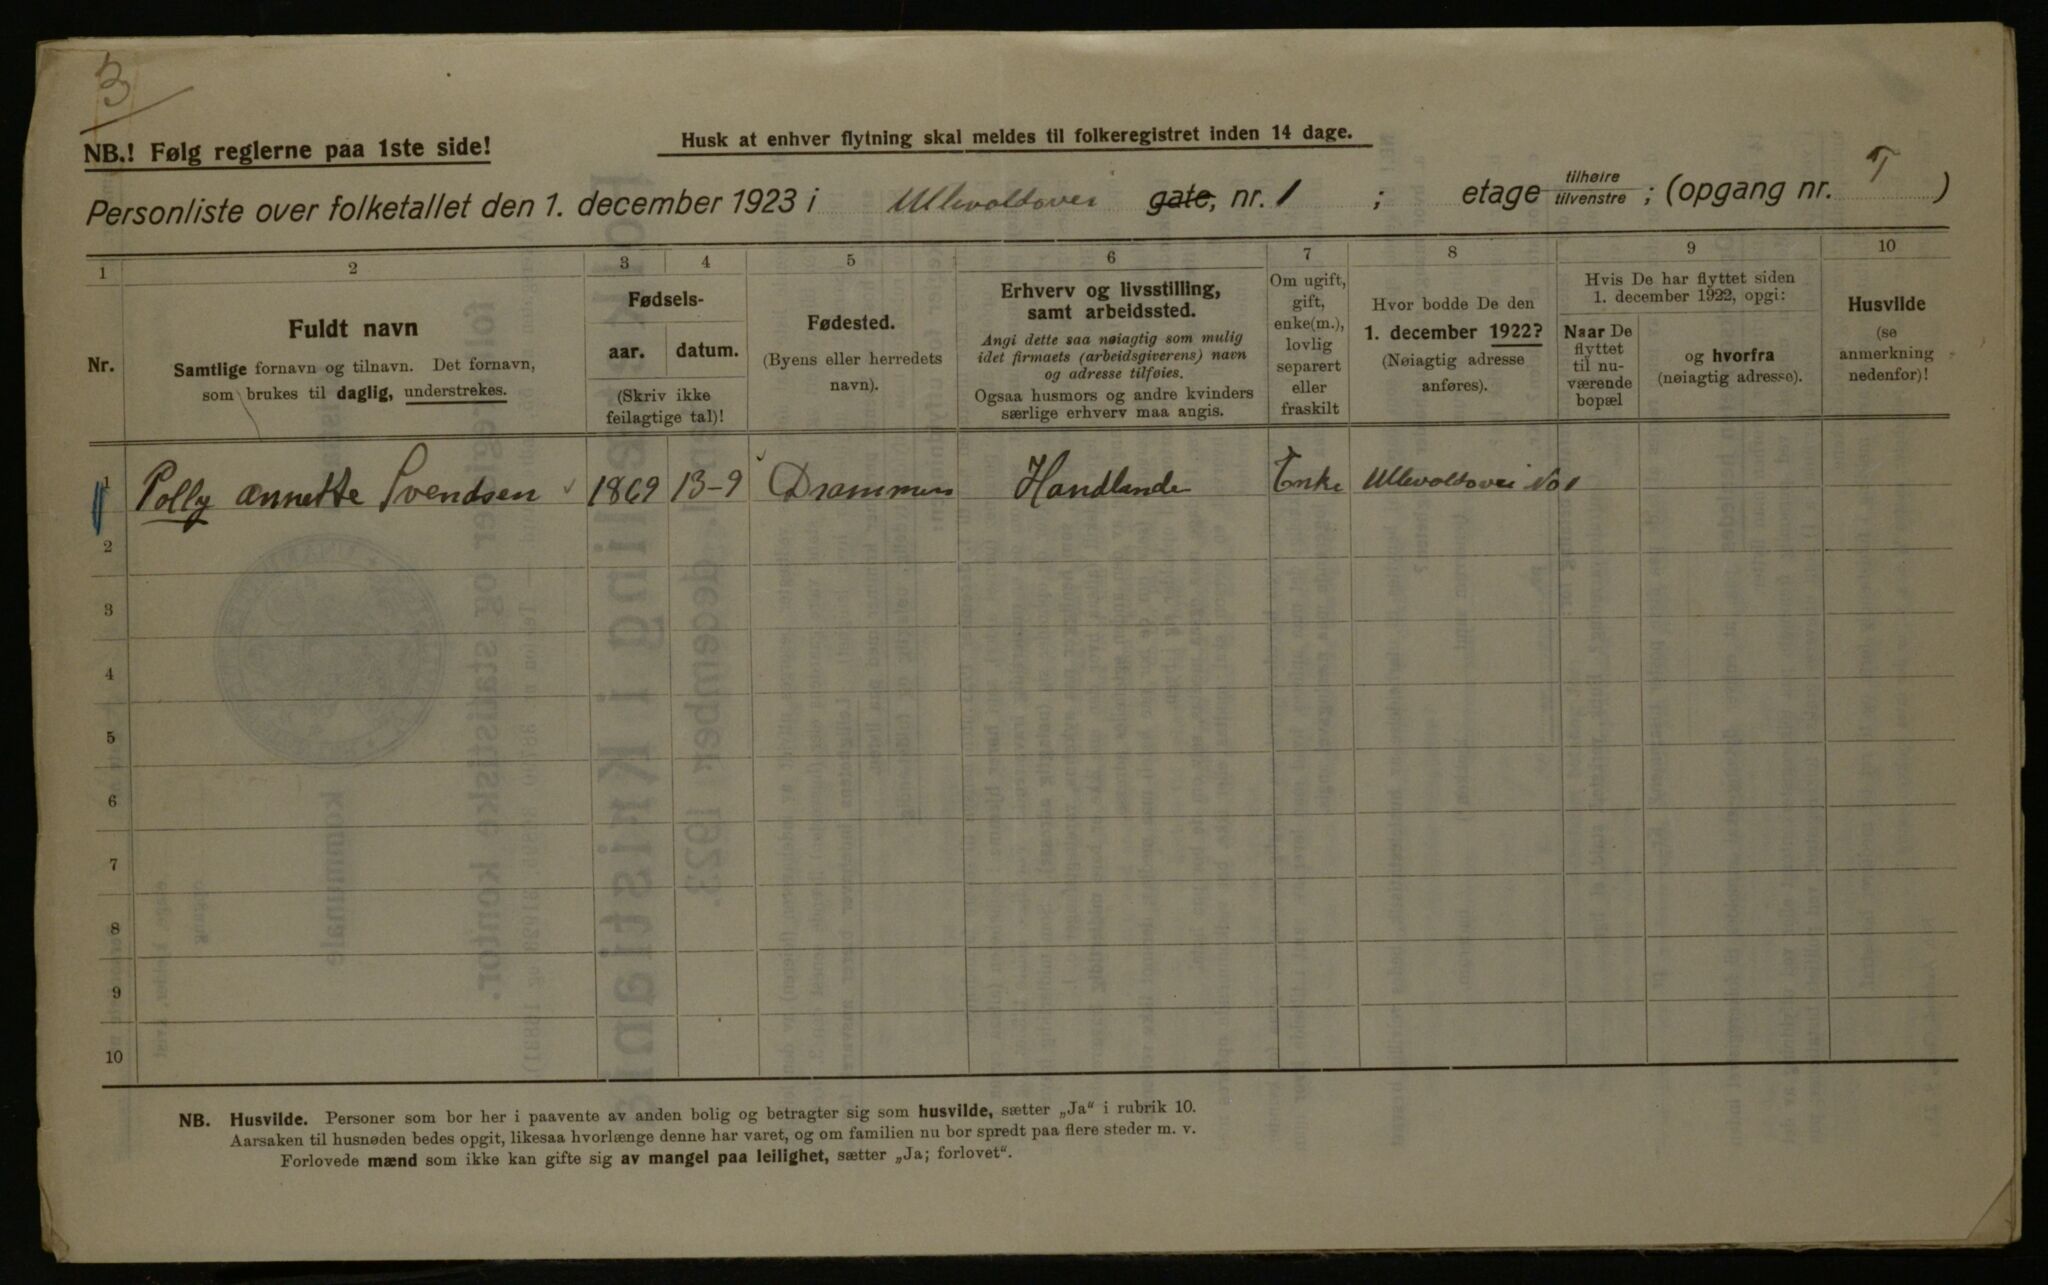 3
NB.! Følg reglerne paa 1ste side!
Husk at enhver flytning skal meldes til folkeregistret inden 14 dage.
Personliste over folketallet den 1. december 1923 i Ullevoldsvei gate, nr. 1 ; etage tilhøire tilvenstre ; (opgang nr. )
1 2 3 4 5 6 7 8 9 10
Nr.
Fuldt navn
Samtlige fornavn og tilnavn. Det fornavn,
som brukes til daglig, understrekes.
Fødsels-
aar. datum.
(Skriv ikke
feilagtige tal)!
Fødested.
(Byens eller herredets
navn).
Erhverv og livsstilling,
samt arbeidssted.
Angi dette saa nøiagtig som mulig
idet firmaets (arbeidsgiverens) navn
og adresse tilføies.
Ogsaa husmors og andre kvinders
særlige erhverv maa angis.
Om ugift,
gift,
enke(m.),
lovlig
separert
eller
fraskilt
Hvor bodde De den
1. december 1922?
(Nøiagtig adresse
anføres).
Hvis De har flyttet siden
1. december 1922, opgi:
Naar De
flyttet
til nu-
værende
bopæl
og hvorfra
(nøiagtig adresse).
Husvilde
(se
anmerkning
nedenfor)!
1 Polly Annette Svendsen 1869 13-9 Drammen Handlende Enke Ullevoldsvei No 1
2
3
4
5
6
7
8
9
10
NB. Husvilde. Personer som bor her i paavente av anden bolig og betragter sig som husvilde, sætter „Ja“ i rubrik 10.
Aarsaken til husnøden bedes opgit, likesaa hvorlænge denne har varet, og om familien nu bor spredt paa flere steder m. v.
Forlovede mænd som ikke kan gifte sig av mangel paa leilighet, sætter „Ja; forlovet“.